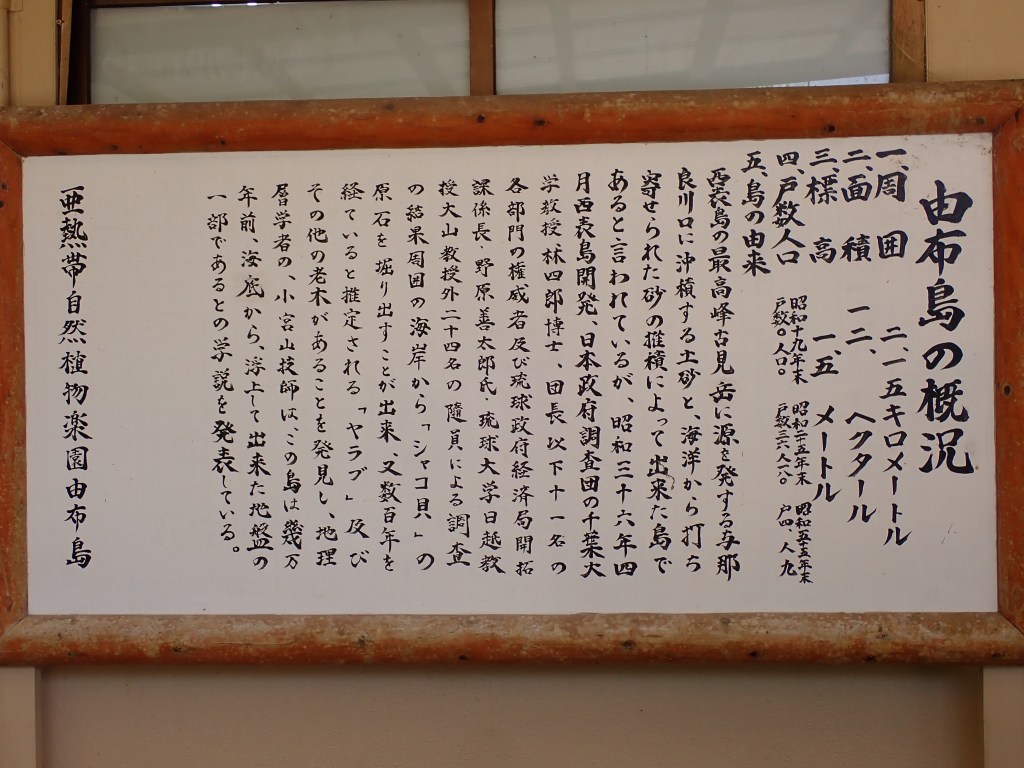 由布島の概況
一、周囲 二、一五キロメートル
二、面積 一二、ヘクタール
三、標高 一、五メートル
四、戸数人口 昭和十九年末 戸数〇人口〇 昭和二十五年末 昭和五十五年末 戸四、人九
五、島の由来
西表島の最高峰古見岳に源を発する与那
良川口に沖積する土砂と、海洋から打ち
寄せられた砂の推積によって出来た島で
あると言われているが、昭和三十六年四
月西表島開発、日本政府調査団の千葉大
学教授林四郎博士、団長以下十一名の
各部門の権威者及び琉球政府経済局開拓
課係長・野原善太郎氏・琉球大学日越教
授大山教授外二十四名の随員による調査
の結果周囲の海岸から「シャコ貝」の
原石を堀り出すことが出来、又数百年を
経ていると推定される「ヤラブ」及び
その他の老木があることを発見し、地理
層学者の、小宮山技師は、この島は幾万
年前、海底から、浮上して出来た地盤の
一部であるとの学説を発表している。
亜熱帯自然植物楽園由布島